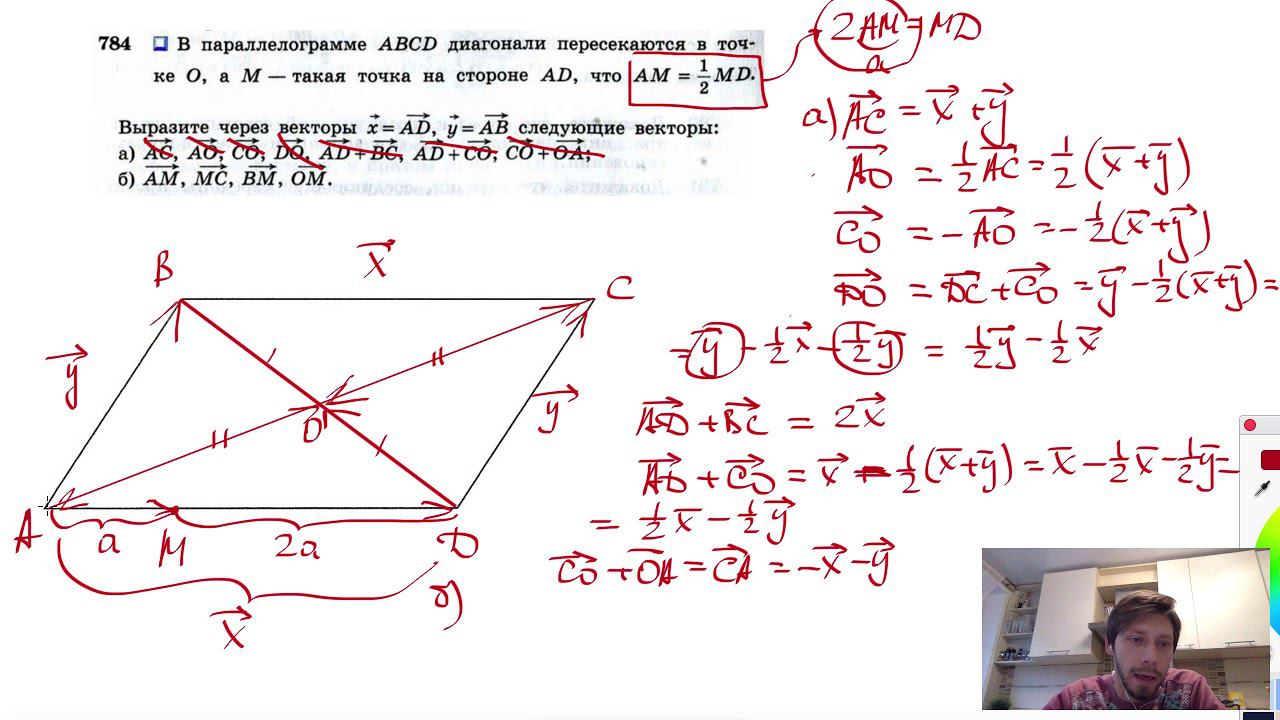 784 В параллелограмме ABCD диагонали пересекаются в точ-
ке O, а M — такая точка на стороне AD, что AM = 1/2 MD.
Выразите через векторы x⃗ = AD⃗, y⃗ = AB⃗ следующие векторы:
а) AC⃗, AO⃗, CO⃗, DO⃗, AD⃗ + BC⃗, AD⃗ + CO⃗, CO⃗ + OA⃗;
б) AM⃗, MC⃗, BM⃗, OM⃗.
2AM = MD
a
а) AC⃗ = x⃗ + y⃗
AO⃗ = 1/2 AC⃗ = 1/2 (x⃗ + y⃗)
CO⃗ = −AO⃗ = −1/2 (x⃗ + y⃗)
DO⃗ = DC⃗ + CO⃗ = y⃗ − 1/2 (x⃗ + y⃗) =
= y⃗ − 1/2 x⃗ − 1/2 y⃗ = 1/2 y⃗ − 1/2 x⃗
AD⃗ + BC⃗ = 2x⃗
AD⃗ + CO⃗ = x⃗ − 1/2 (x⃗ + y⃗) = x⃗ − 1/2 x⃗ − 1/2 y⃗ =
= 1/2 x⃗ − 1/2 y⃗
CO⃗ + OA⃗ = CA⃗ = −x⃗ − y⃗
б)
B x⃗ C
y⃗ y⃗
O
A a M 2a D
x⃗